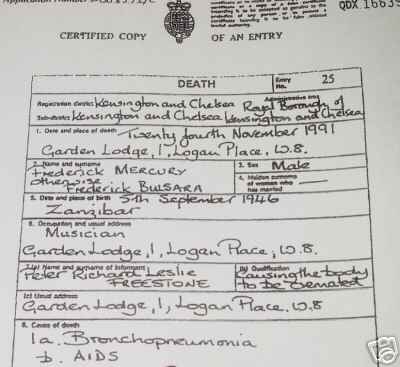 QDX 16639
CERTIFIED COPY
OF AN ENTRY
DEATH
Entry No. 25
Registration district Kensington and Chelsea
Administrative area
Sub-district Kensington and Chelsea
Royal Borough of
Kensington and Chelsea
1. Date and place of death Twenty fourth November 1991
Garden Lodge, 1, Logan Place, W.8.
2. Name and surname
Frederick MERCURY
otherwise
Frederick BULSARA
3. Sex Male
4. Maiden surname
of women who
has married
5. Date and place of birth 5th September 1946
Zanzibar
6. Occupation and usual address
Musician
Garden Lodge, 1, Logan Place, W.8.
7.(a) Name and surname of informant
Peter Richard Leslie
FREESTONE
(b) Qualification
Causing the body
to be cremated
(c) Usual address
Garden Lodge, 1, Logan Place, W.8
8. Cause of death
1a. Bronchopneumonia
b. AIDS